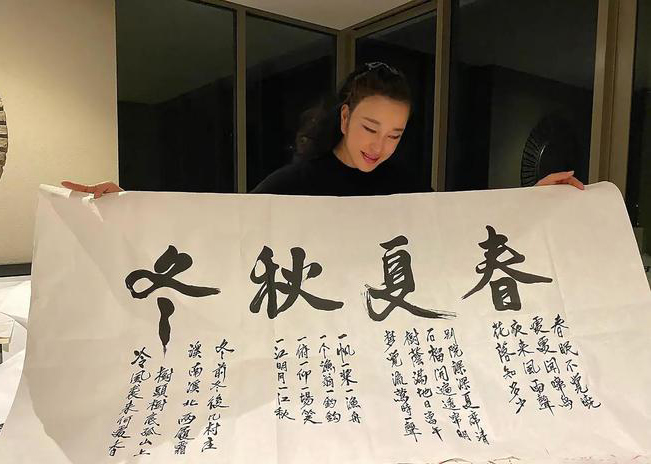 春夏秋冬
春眠不覺曉
處處聞啼鳥
夜来風雨聲
花落知多少
別院深深夏席清
石榴開遍透簾明
樹蔭滿地日當午
夢覺流鶯時一聲
一帆一槳一漁舟
一个漁翁一釣鉤
一俯一仰一場笑
一江明月一江秋
冬前冬後几村庄
溪南溪北兩履霜
樹頭樹底孤山上
冷風襲来何處香